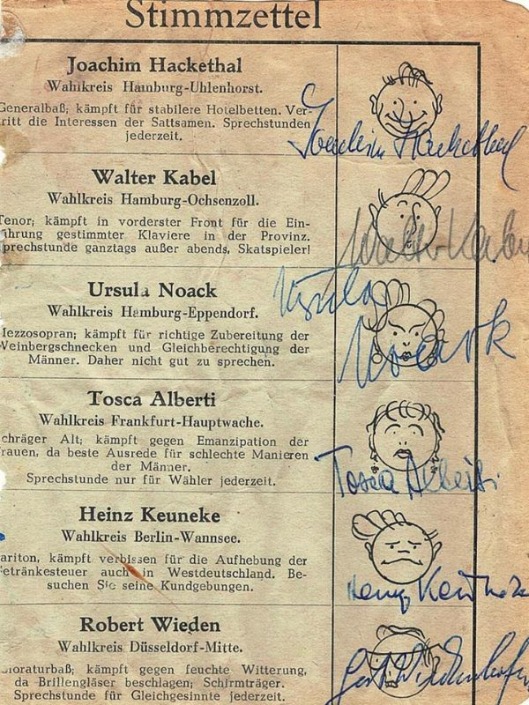 Stimmzettel
Joachim Hackethal
Wahlkreis Hamburg-Uhlenhorst.
Generalbaß; kämpft für stabilere Hotelbetten. Ver-
ritt die Interessen der Sattsamen. Sprechstunden
jederzeit.
Joachim Hackethal
Walter Kabel
Wahlkreis Hamburg-Ochsenzoll.
Tenor; kämpft in vorderster Front für die Ein-
ührung gestimmter Klaviere in der Provinz.
prechstunde ganztags außer abends, Skatspieler!
Walter Kabel
Ursula Noack
Wahlkreis Hamburg-Eppendorf.
Mezzosopran; kämpft für richtige Zubereitung der
Weinbergschnecken und Gleichberechtigung der
Männer. Daher nicht gut zu sprechen.
Ursula
Noack
Tosca Alberti
Wahlkreis Frankfurt-Hauptwache.
chräger Alt; kämpft gegen Emanzipation der
rauen, da beste Ausrede für schlechte Manieren
der Männer.
Sprechstunde nur für Wähler jederzeit.
Tosca Alberti
Heinz Keuneke
Wahlkreis Berlin-Wannsee.
ariton, kämpft verbissen für die Aufhebung der
etränkesteuer auch in Westdeutschland. Be-
suchen Sie seine Kundgebungen.
Robert Wieden
Wahlkreis Düsseldorf-Mitte.
oloraturbaß; kämpft gegen feuchte Witterung,
da Brillengläser beschlagen; Schirmträger.
Sprechstunde für Gleichgesinnte jederzeit.